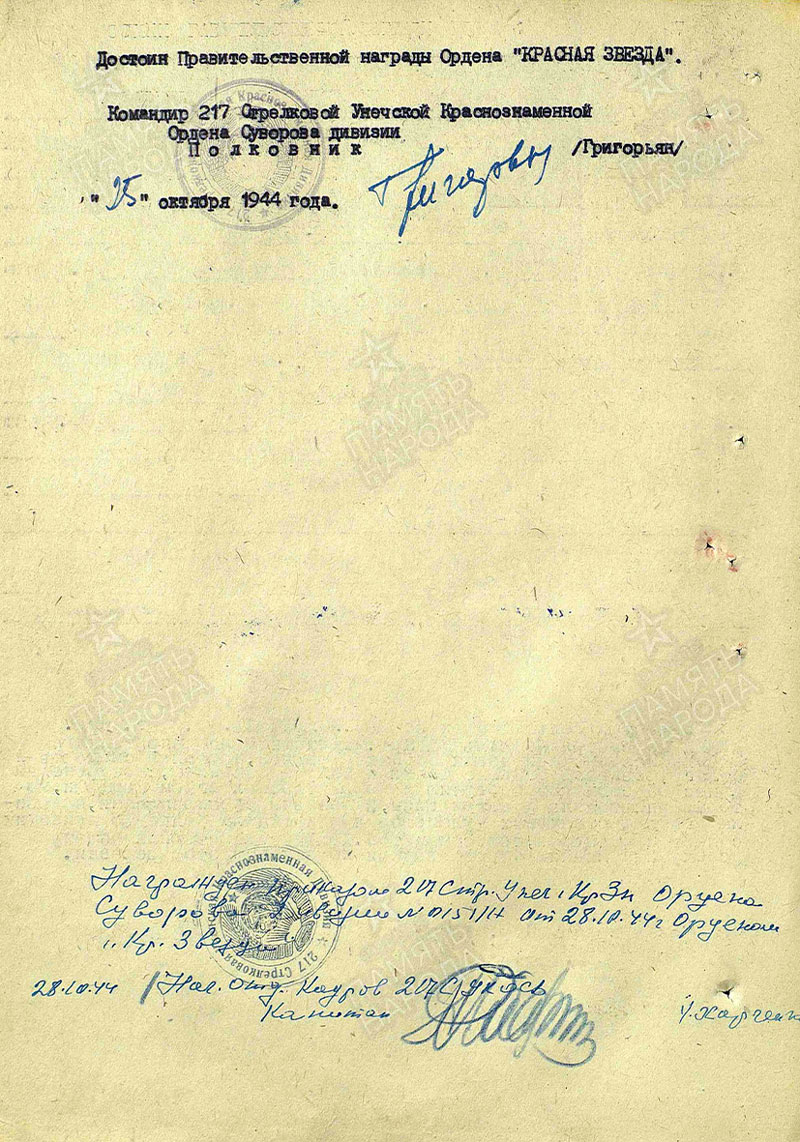 Достоин Правительственной награды Ордена "КРАСНАЯ ЗВЕЗДА".
Командир 217 Стрелковой Унечской Краснознаменной
Ордена Суворова дивизии
Полковник /Григорьян/
"25" октября 1944 года.
ПАМЯТЬ НАРОДА
ПАМЯТЬ НАРОДА
ПАМЯТЬ НАРОДА
Награжден приказом 217 Стр. Унеч. Кр Зн Ордена
Суворова Дивизии № 0151/Н от 28.10.44г Орденом
"Кр. Звезда"
28.10.44 Нач. отд. Кадров 217 С
Капитан Харченко
Краснознаменная Дивизия
217 Стрелковая